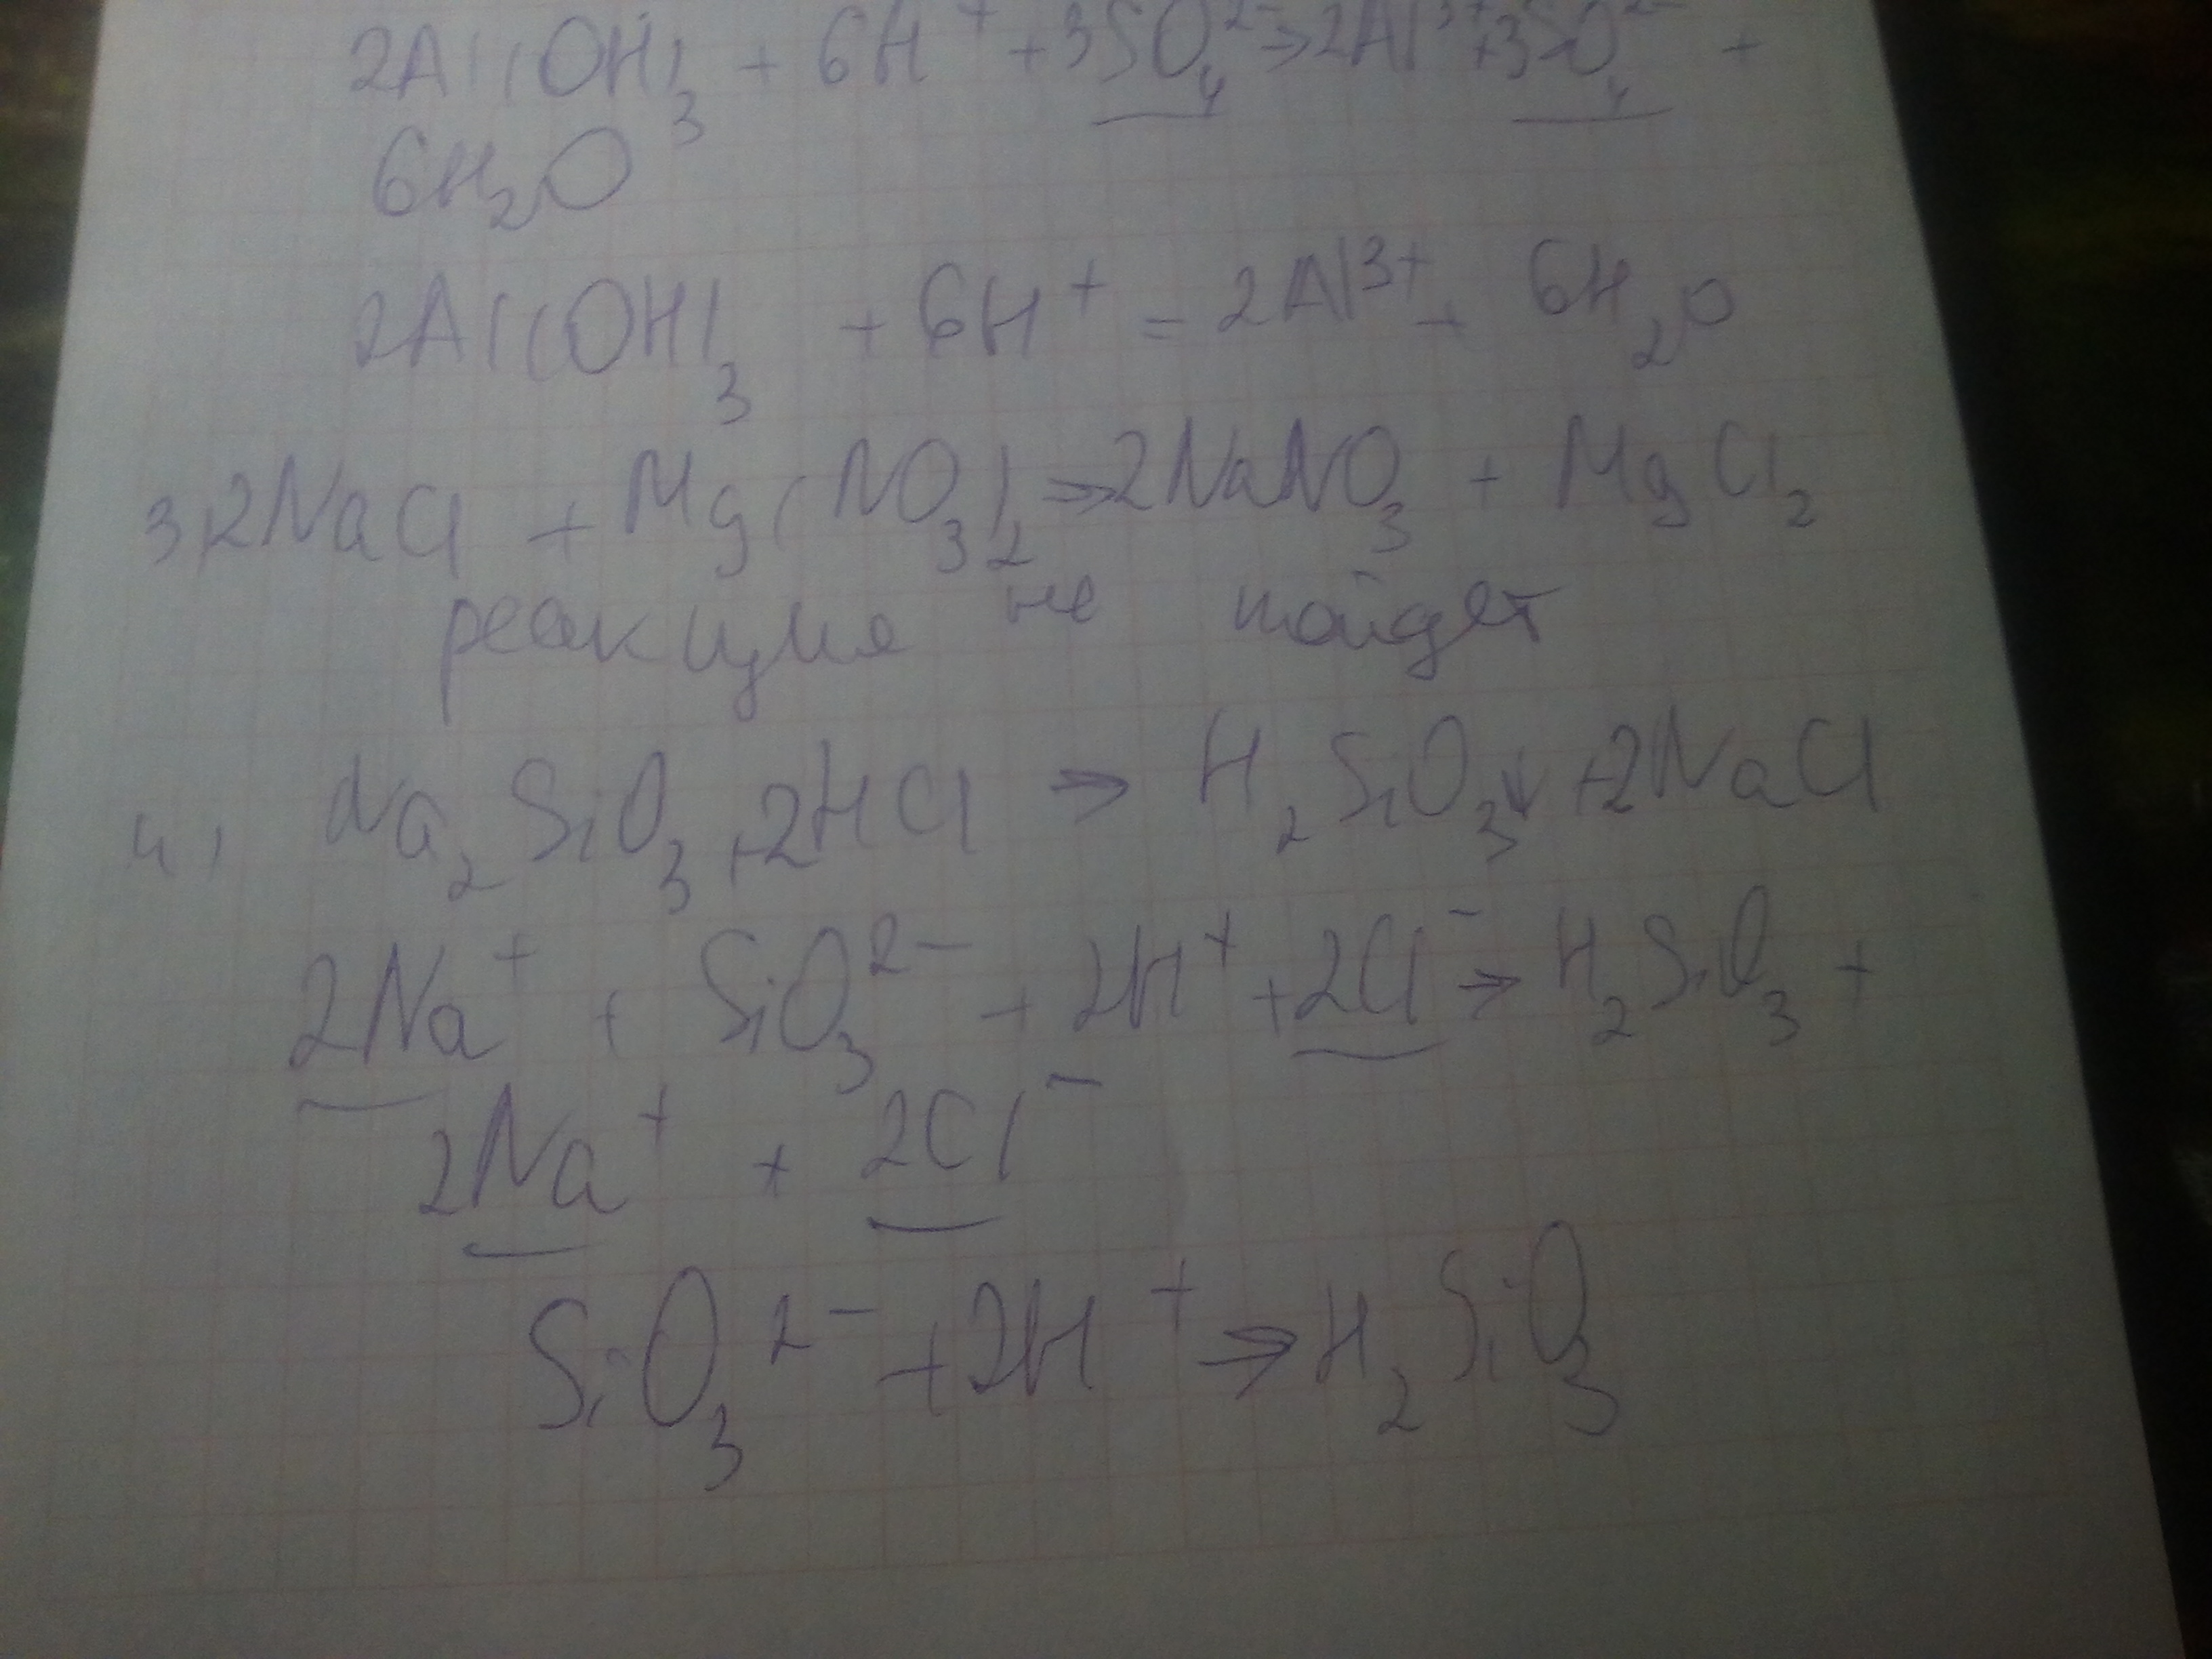 2Al(OH)₃ + 6H⁺ + 3SO₄²⁻ → 2Al³⁺ + 3SO₄²⁻ +
6H₂O
2Al(OH)₃ + 6H⁺ = 2Al³⁺ + 6H₂O
3) 2NaCl + Mg(NO₃)₂ → 2NaNO₃ + MgCl₂
реакция не пойдет
4) Na₂SiO₃ + 2HCl → H₂SiO₃↓ + 2NaCl
2Na⁺ + SiO₃²⁻ + 2H⁺ + 2Cl⁻ → H₂SiO₃ +
2Na⁺ + 2Cl⁻
SiO₃²⁻ + 2H⁺ → H₂SiO₃